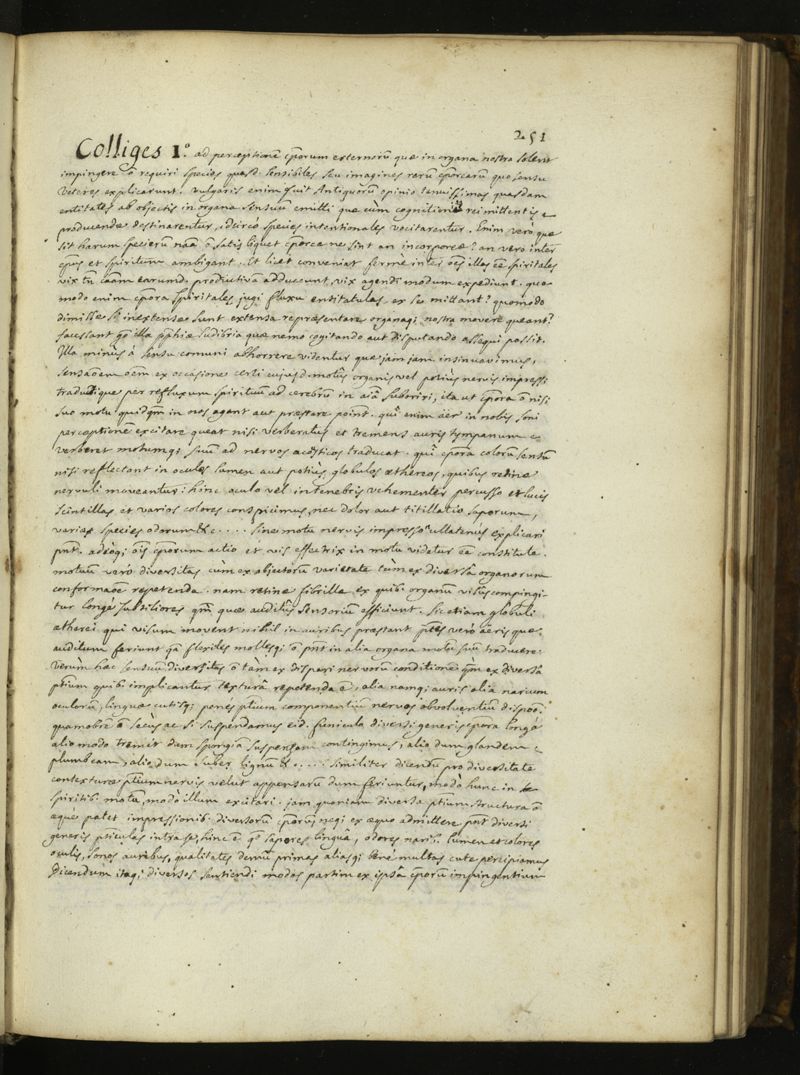 251
Colliges 1.º ad perceptionē cp̄orum externorū quæ in organa nostra solent
impingere ō requiri species quasd. sensibiles seu imagines rerū cp̄orearū quo sensu
veteres explicarunt. vulgaris enim fuit Antiquorū opinio tenuissimas quasdam
entitates ab objectis in organa sensuū emitti quæ cùm cognitioni rei mittentis
producendæ destinarentur, idcircò species intentionales vocitarentur. Enim verò quæ
sit harum specierū nāa ō satis liquet cp̄oreæ ne sint an incorporeæ? an verò inter
cp̄us et spiritum ambigant. Et licet conveniat fermè inter oēs illas eē spiritales
vix tn̄ cāam earund. productivā adducunt, vix agendi modum expediunt. quo-
modo enim cp̄ora spiritales jugi fluxu entitatulas ex se mittant? quomodo
dimissæ si inextensæ sunt extensa repræsentare, organaq; nostra movere queant?
facessant gō illa pphiæ ludibria quæ nemo cogitando aut disputando assequi possit.
Illa minùs à sensu comuni abhorrere videntur quæ jam jam insinuavimus,
sensāoem oēm ex occasione certi ejusd. motûs organis vel potiùs nervis impressi
traductique per refluxum spirituū ad cerebrū in aīâ suboriri, ita ut cp̄ora ō nisi
suo motu quidqm̄ in nos agant aut præstare point. quî enim äer in nobis soni
perceptionē excitare queat nisi verberatus et tremens auris tympanum
verberet motumq; suū ad nervos acosticos traducat. quî cp̄ora colorū sensū
nisi reflectant in oculos lumen aut potiùs globulos æthereos, quibus retinæ
nervuli moveantur: hinc oculo vel in tenebris vehementer percusso et lucis
scintillas et varios colores conspicimus, nec dolor aut titillatio saporum,
variæ species odorum &c.... sine motu nervis impresso ullatenùs explicari
pnt. adeòq; oīs cp̄orum actio et vis effectrix in motu videtur eē constituta.
motuum verò diversitas cùm ex objectorū varietate tùm ex diversâ organorum
conformaōe repetenda. nam retinæ fibrillæ ex quibʒ organū visûs compingi-
tur longè subtiliores qm̄ quæ auditûs sensorium efficiunt. Sic etiam globuli
ætherei qui visum movent nihil in auribus præstant ptes verò äeris quæ
auditum feriunt qā flexiles mollesq; ō pnt in alia organa motū suū traducere.
Verùm hæc sensuū diversitas ō tàm ex dispari nervorū conditione qm̄ ex diversâ
ptium quibʒ implicantur texturâ repetenda ē, alia namq; auris alia narium
oculorū, linguæ cutisq; penes ptium componentiū nervos obvolventiū dispos.
quamobrē ō secùs ac si suspendamus eid. funiculo diversi generis cp̄ora longè
alio modo tremet dum spongiā suspensam contingimus, alio dum glandem
plumbeam, alio dum suber, lignū &c.... similiter dicendū pro diversitate
contexturæ ptium nervis velut appensarū dum feriuntur, modò hunc in
spiritibʒ motū, modò illum excitari. jam quoniam diversa ptium structura ō
æque patet impressionibʒ diversorū cp̄orū, neq; ex æquo admittere pnt diversi
generis pticulas intra se, hinc ē qd sapores linguâ, odores naribʒ. lumen et colores
oculis, sonos auribus, qualitates demū primas aliasq; benè multas cute percipiamus
Dicendum itaq; diversos sentiendi modos partim ex ipsâ cp̄orū impingentium